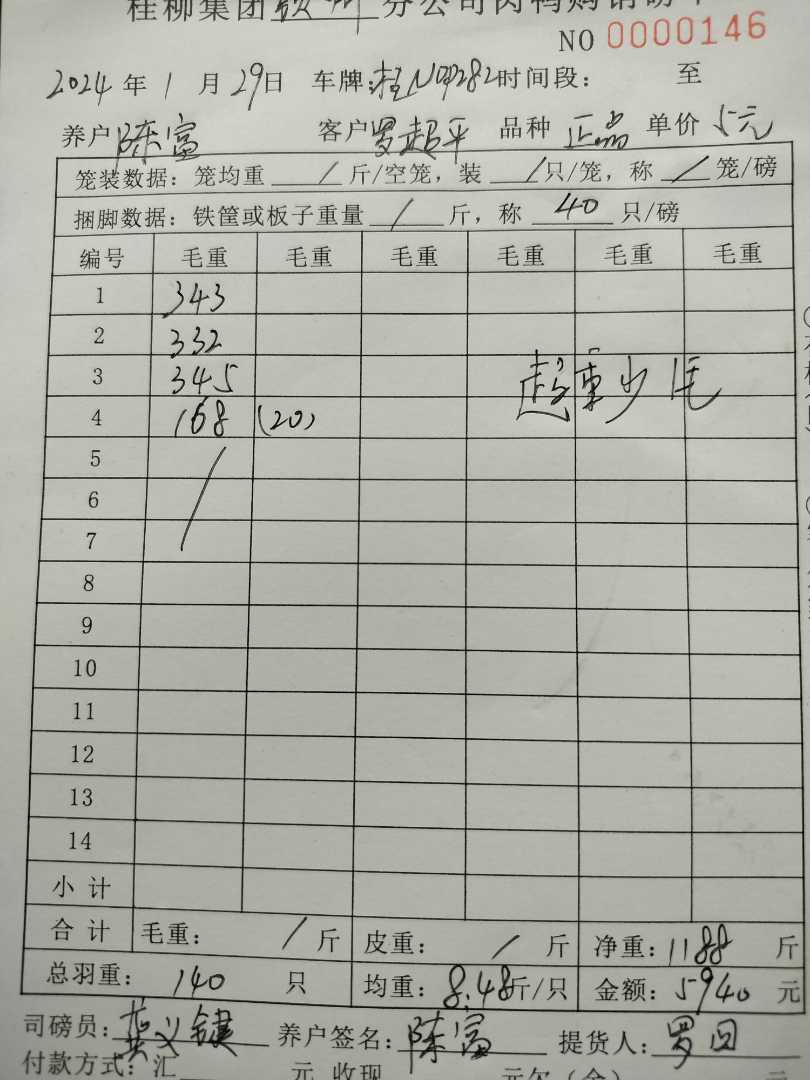 桂柳集团钦州分公司肉鸭购销磅单
NO 0000146
2024年1月29日 车牌:桂N09282时间段: 至
养户陈富 客户罗超平 品种 正品 单价 5元
笼装数据:笼均重 / 斤/空笼,装 / 只/笼,称 / 笼/磅
捆脚数据:铁筐或板子重量 / 斤,称 40 只/磅
编号 毛重 毛重 毛重 毛重 毛重 毛重
1 343
2 332
3 345 超重少毛
4 168 (20)
5
6 /
7
8
9
10
11
12
13
14
小计
合计 毛重: / 斤 皮重: / 斤 净重:1188 斤
总羽重: 140 只 均重:8.48斤/只 金额:5940 元
司磅员: 养户签名:陈富 提货人:罗
付款方式:汇 元 收现 元欠(余) 元